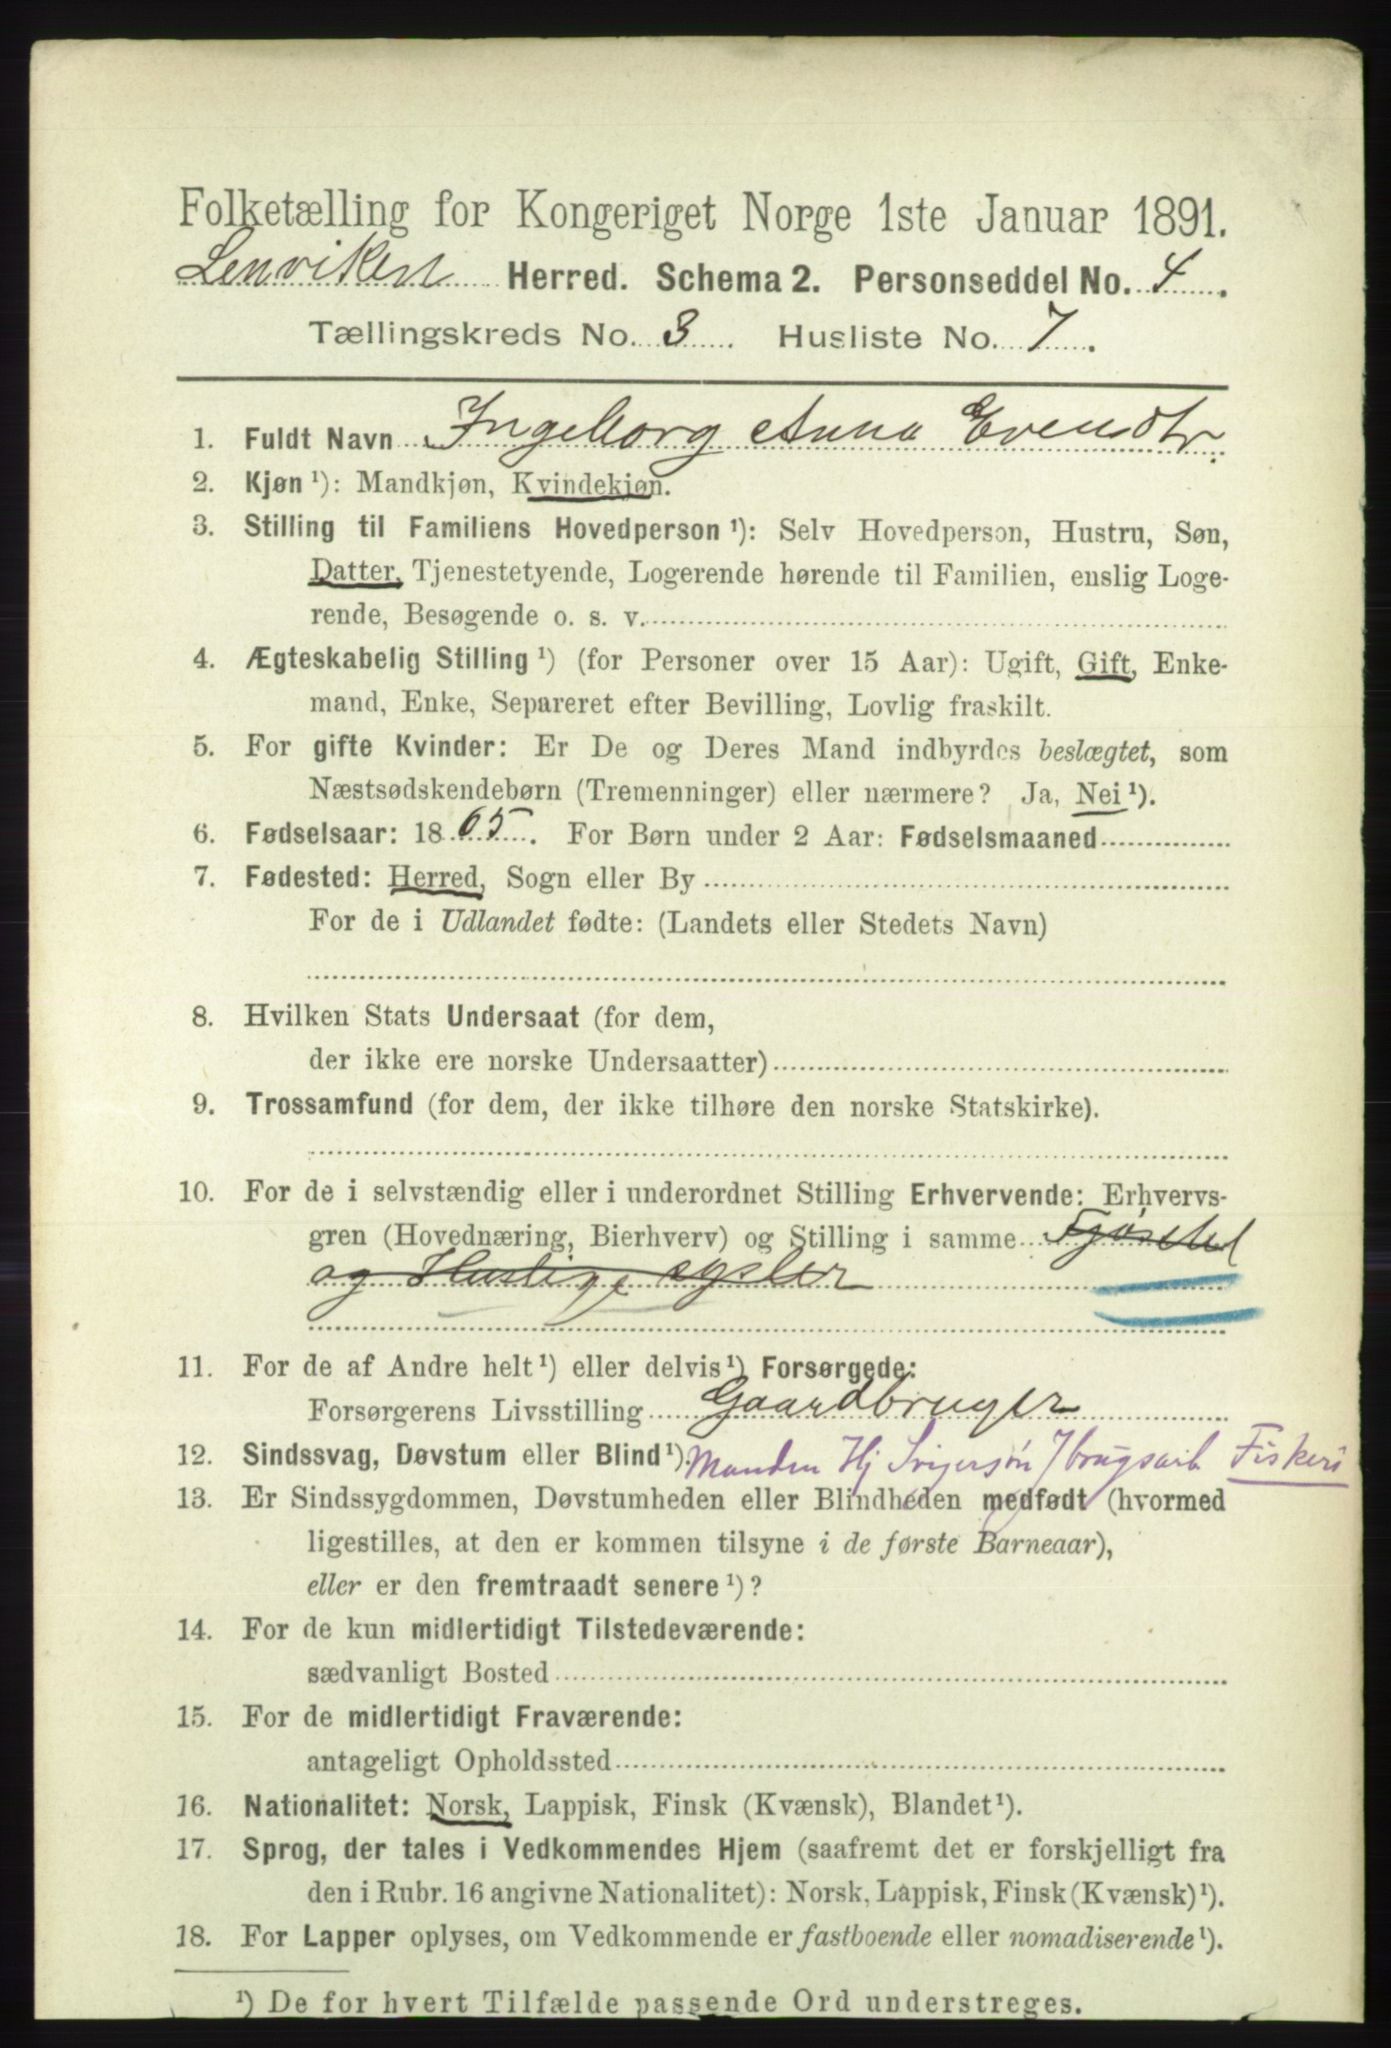 Folketælling for Kongeriget Norge 1ste Januar 1891.
Lenviken Herred. Schema 2. Personseddel No. 4.
Tællingskreds No. 3. Husliste No. 7.
1. Fuldt Navn Ingeborg Anna Evensdtr.
2. Kjøn ¹): Mandkjøn, Kvindekjøn.
3. Stilling til Familiens Hovedperson ¹): Selv Hovedperson, Hustru, Søn,
Datter, Tjenestetyende, Logerende hørende til Familien, enslig Loge-
rende, Besøgende o. s. v.
4. Ægteskabelig Stilling ¹) (for Personer over 15 Aar): Ugift, Gift, Enke-
mand, Enke, Separeret efter Bevilling, Lovlig fraskilt.
5. For gifte Kvinder: Er De og Deres Mand indbyrdes beslægtet, som
Næstsødskendebørn (Tremenninger) eller nærmere? Ja, Nei ¹).
6. Fødselsaar: 1865. For Børn under 2 Aar: Fødselsmaaned
7. Fødested: Herred, Sogn eller By
For de i Udlandet fødte: (Landets eller Stedets Navn)
8. Hvilken Stats Undersaat (for dem,
der ikke ere norske Undersaatter)
9. Trossamfund (for dem, der ikke tilhøre den norske Statskirke).
10. For de i selvstændig eller i underordnet Stilling Erhvervende: Erhvervs-
gren (Hovednæring, Bierhverv) og Stilling i samme Fjøsstel
og Huslige sysler
11. For de af Andre helt ¹) eller delvis ¹) Forsørgede:
Forsørgerens Livsstilling Gaardbruger
12. Sindssvag, Døvstum eller Blind ¹). Manden Hj Svigersøn Fiskeri
13. Er Sindssygdommen, Døvstumheden eller Blindheden medfødt (hvormed
ligestilles, at den er kommen tilsyne i de første Barneaar),
eller er den fremtraadt senere ¹)?
14. For de kun midlertidigt Tilstedeværende:
sædvanligt Bosted
15. For de midlertidigt Fraværende:
antageligt Opholdssted
16. Nationalitet: Norsk, Lappisk, Finsk (Kvænsk), Blandet ¹).
17. Sprog, der tales i Vedkommendes Hjem (saafremt det er forskjelligt fra
den i Rubr. 16 angivne Nationalitet): Norsk, Lappisk, Finsk (Kvænsk) ¹).
18. For Lapper oplyses, om Vedkommende er fastboende eller nomadiserende ¹).
¹) De for hvert Tilfælde passende Ord understreges.